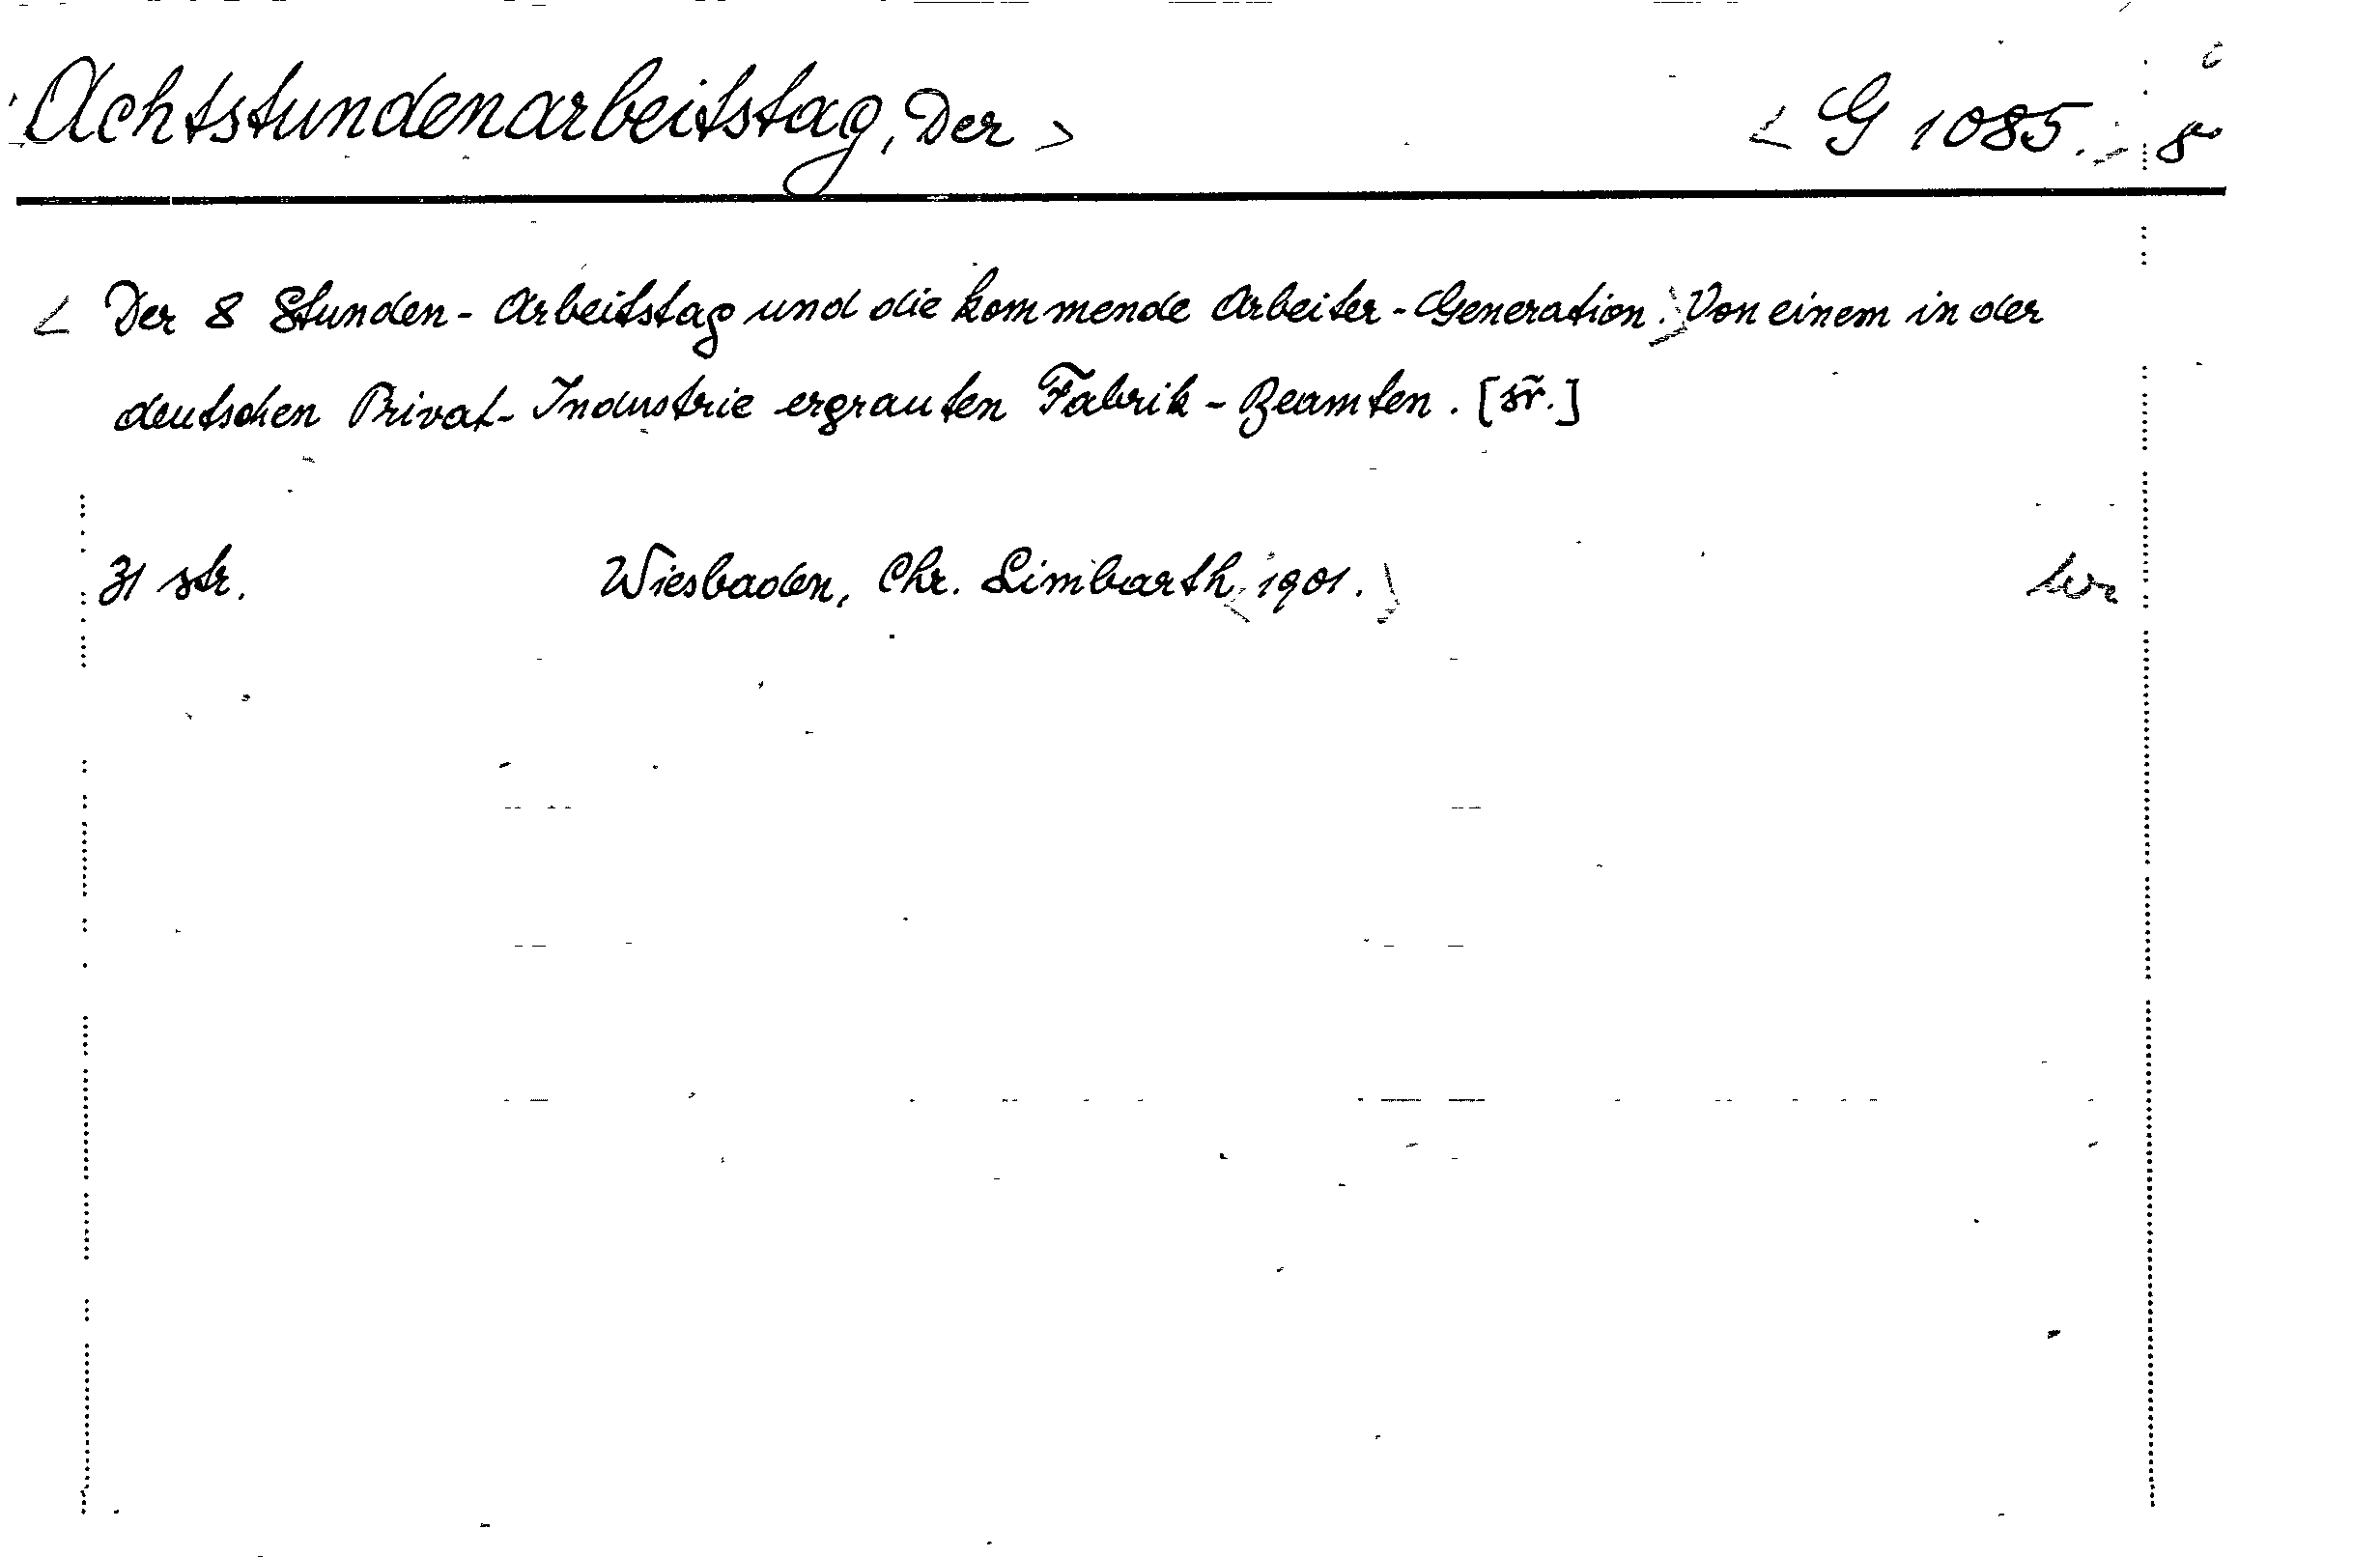 Achtstundenarbeitstag, Der > < G 1085. 8°
< Der 8 Stunden-Arbeitstag und die kommende Arbeiter-Generation.> Von einem in der
deutschen Privat-Industrie ergrauten Fabrik-Beamten.
31 str. Wiesbaden, Chr. Limbarth <1901.>